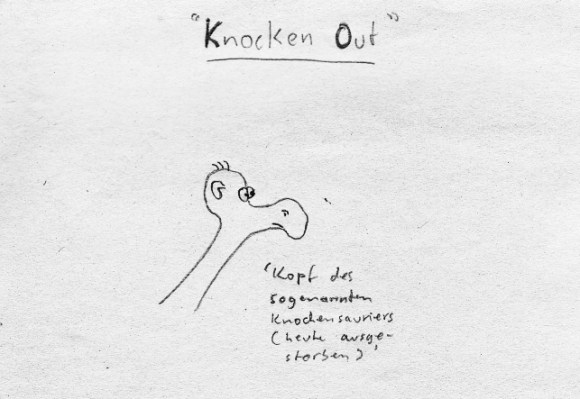 "Knocken Out"
'Kopf des
sogenannten
Knochensauriers
(heute ausge-
storben)'